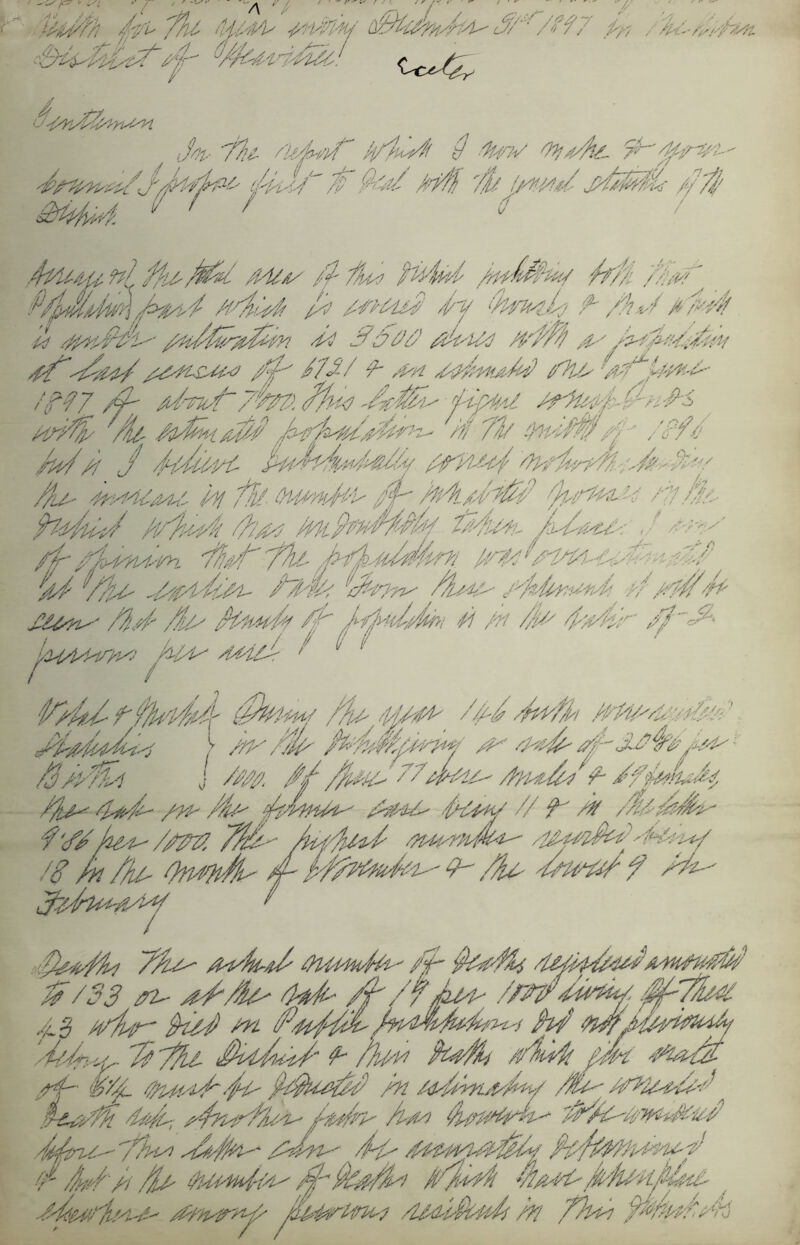 Health for the year ending December 31st 1897 in the Urban
District of Heavitree.
Exeter
Gentlemen
In the report which I now make to your
Council I propose first to deal with the general statistics of the
District.
Acreage & The total area of this District including both that
Population part which is covered by houses & that which
is under cultivation is 3500 acres with a population
at last census of & an estimated one at June
1897 of about 7000. This latter figure corresponds
with the estimated population in the middle of 1896
but is I believe substantially correct notwithstanding
the increase in the number of inhabited houses in the
District which has undoubtedly taken place. I am
of opinion that the population was overestimated
at the earlier date. From these statements it will be
seen that the density of population is in the ratio of 2
persons per acre.
Vital & Mortal During the year 146 births were
Statistics in the District giving a rate of per
Births 1000. Of these 77 were males & 69 females,
the rate in the former case being 11 & in the latter
9.86 per 1000. The highest number recorded being
18 in the month of November & the lowest 9 in
February
Deaths The actual number of deaths registered amounted
to 133 or at the rate of 19 per 1000 living. Of these
43 who died in Public Institutions did not previously
belong to the District & their deaths which give a rate
of must be deducted in estimating the corrected
death rate. Another factor has however to be considered
before this latter can be accurately determined
& that is the number of deaths which have taken place
elsewhere among persons residents in this District. As